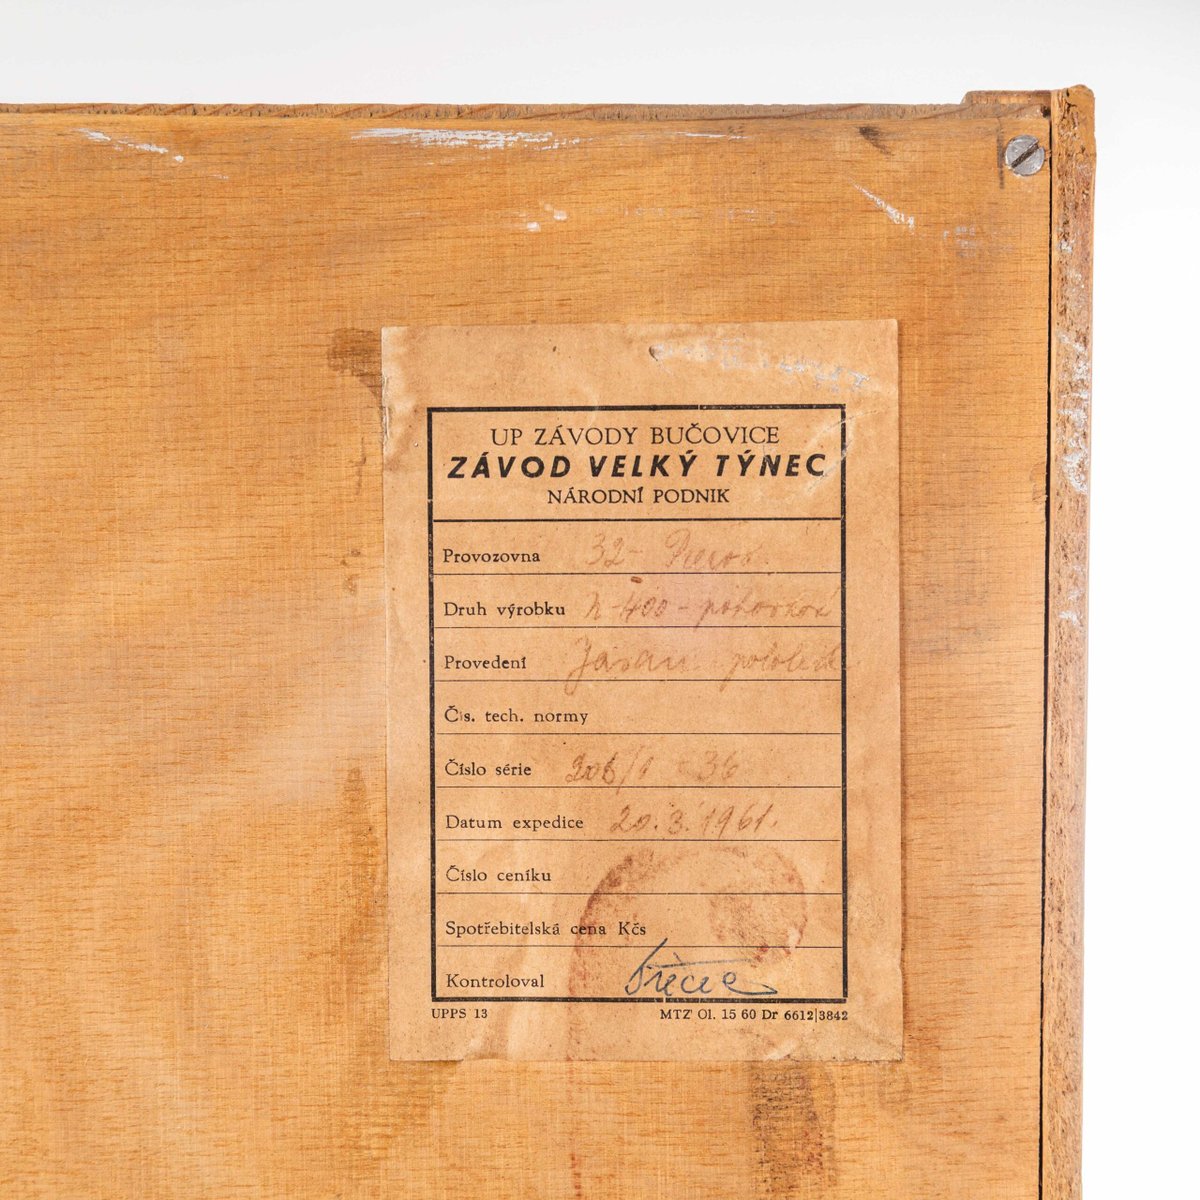 UP ZÁVODY BUČOVICE
ZÁVOD VELKÝ TÝNEC
NÁRODNÍ PODNIK
Provozovna 32-
Druh výrobku 400 -
Provedení Jasan
Čís. tech. normy
Číslo série 206/1 - 36
Datum expedice 20.3.1961.
Číslo ceníku
Spotřebitelská cena Kčs
Kontroloval
UPPS 13 MTZ Ol. 15 60 Dr 6612|3842